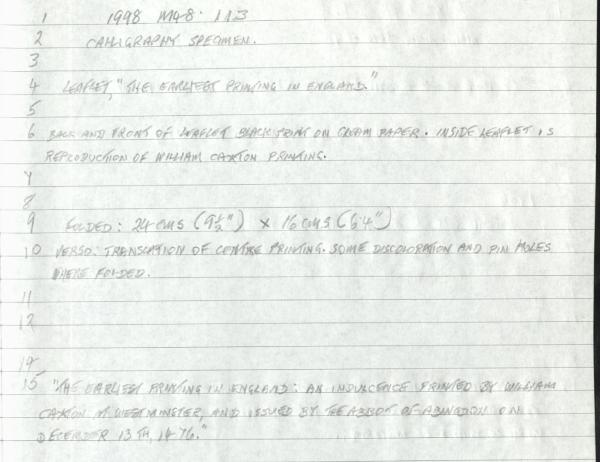 1 1998 M48. 113
2 CALLIGRAPHY SPECIMEN.
3
4 LEAFLET, "THE EARLIEST PRINTING IN ENGLAND."
5
6 BACK AND FRONT OF LEAFLET BLACK PRINT ON CREAM PAPER. INSIDE LEAFLET IS
REPRODUCTION OF WILLIAM CAXTON PRINTING.
7
8
9 FOLDED: 24 CMS (9½") X 16 CMS (6.4")
10 VERSO: TRANSLATION OF CENTRE PRINTING. SOME DISCOLORATION AND PIN HOLES
WHERE FOLDED.
11
12
14
15 "THE EARLIEST PRINTING IN ENGLAND: AN INDULGENCE PRINTED BY WILLIAM
CAXTON AT WESTMINSTER, AND ISSUED BY THE ABBOT OF ABINGDON ON
DECEMBER 13TH, 1476."